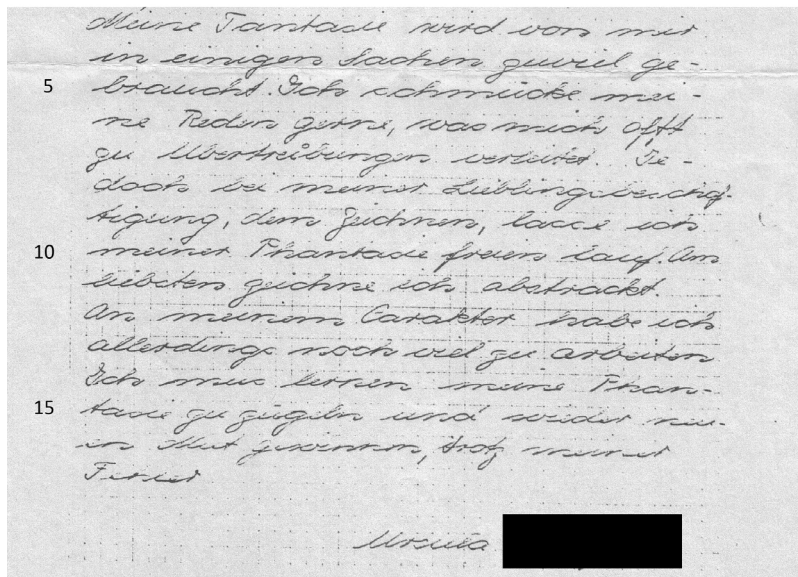 Meine Fantasie wird von mir
in einigen Sachen zuviel ge-
5 braucht. Ich schmücke mei-
ne Reden gerne, was mich offt
zu Übertreibungen verleitet. Je-
doch bei meiner Lieblingsbeschäf-
tigung, dem Zeichnen, lasse ich
10 meiner Phantasie freien lauf. Am
liebsten zeichne ich abstrackt.
An meinem Carakter habe ich
allerdings noch viel zu arbeiten
Ich mus lernen meine Phan-
15 tasie zu zügeln und wieder neu-
en Mut gewinnen, trotz meiner
Ursula